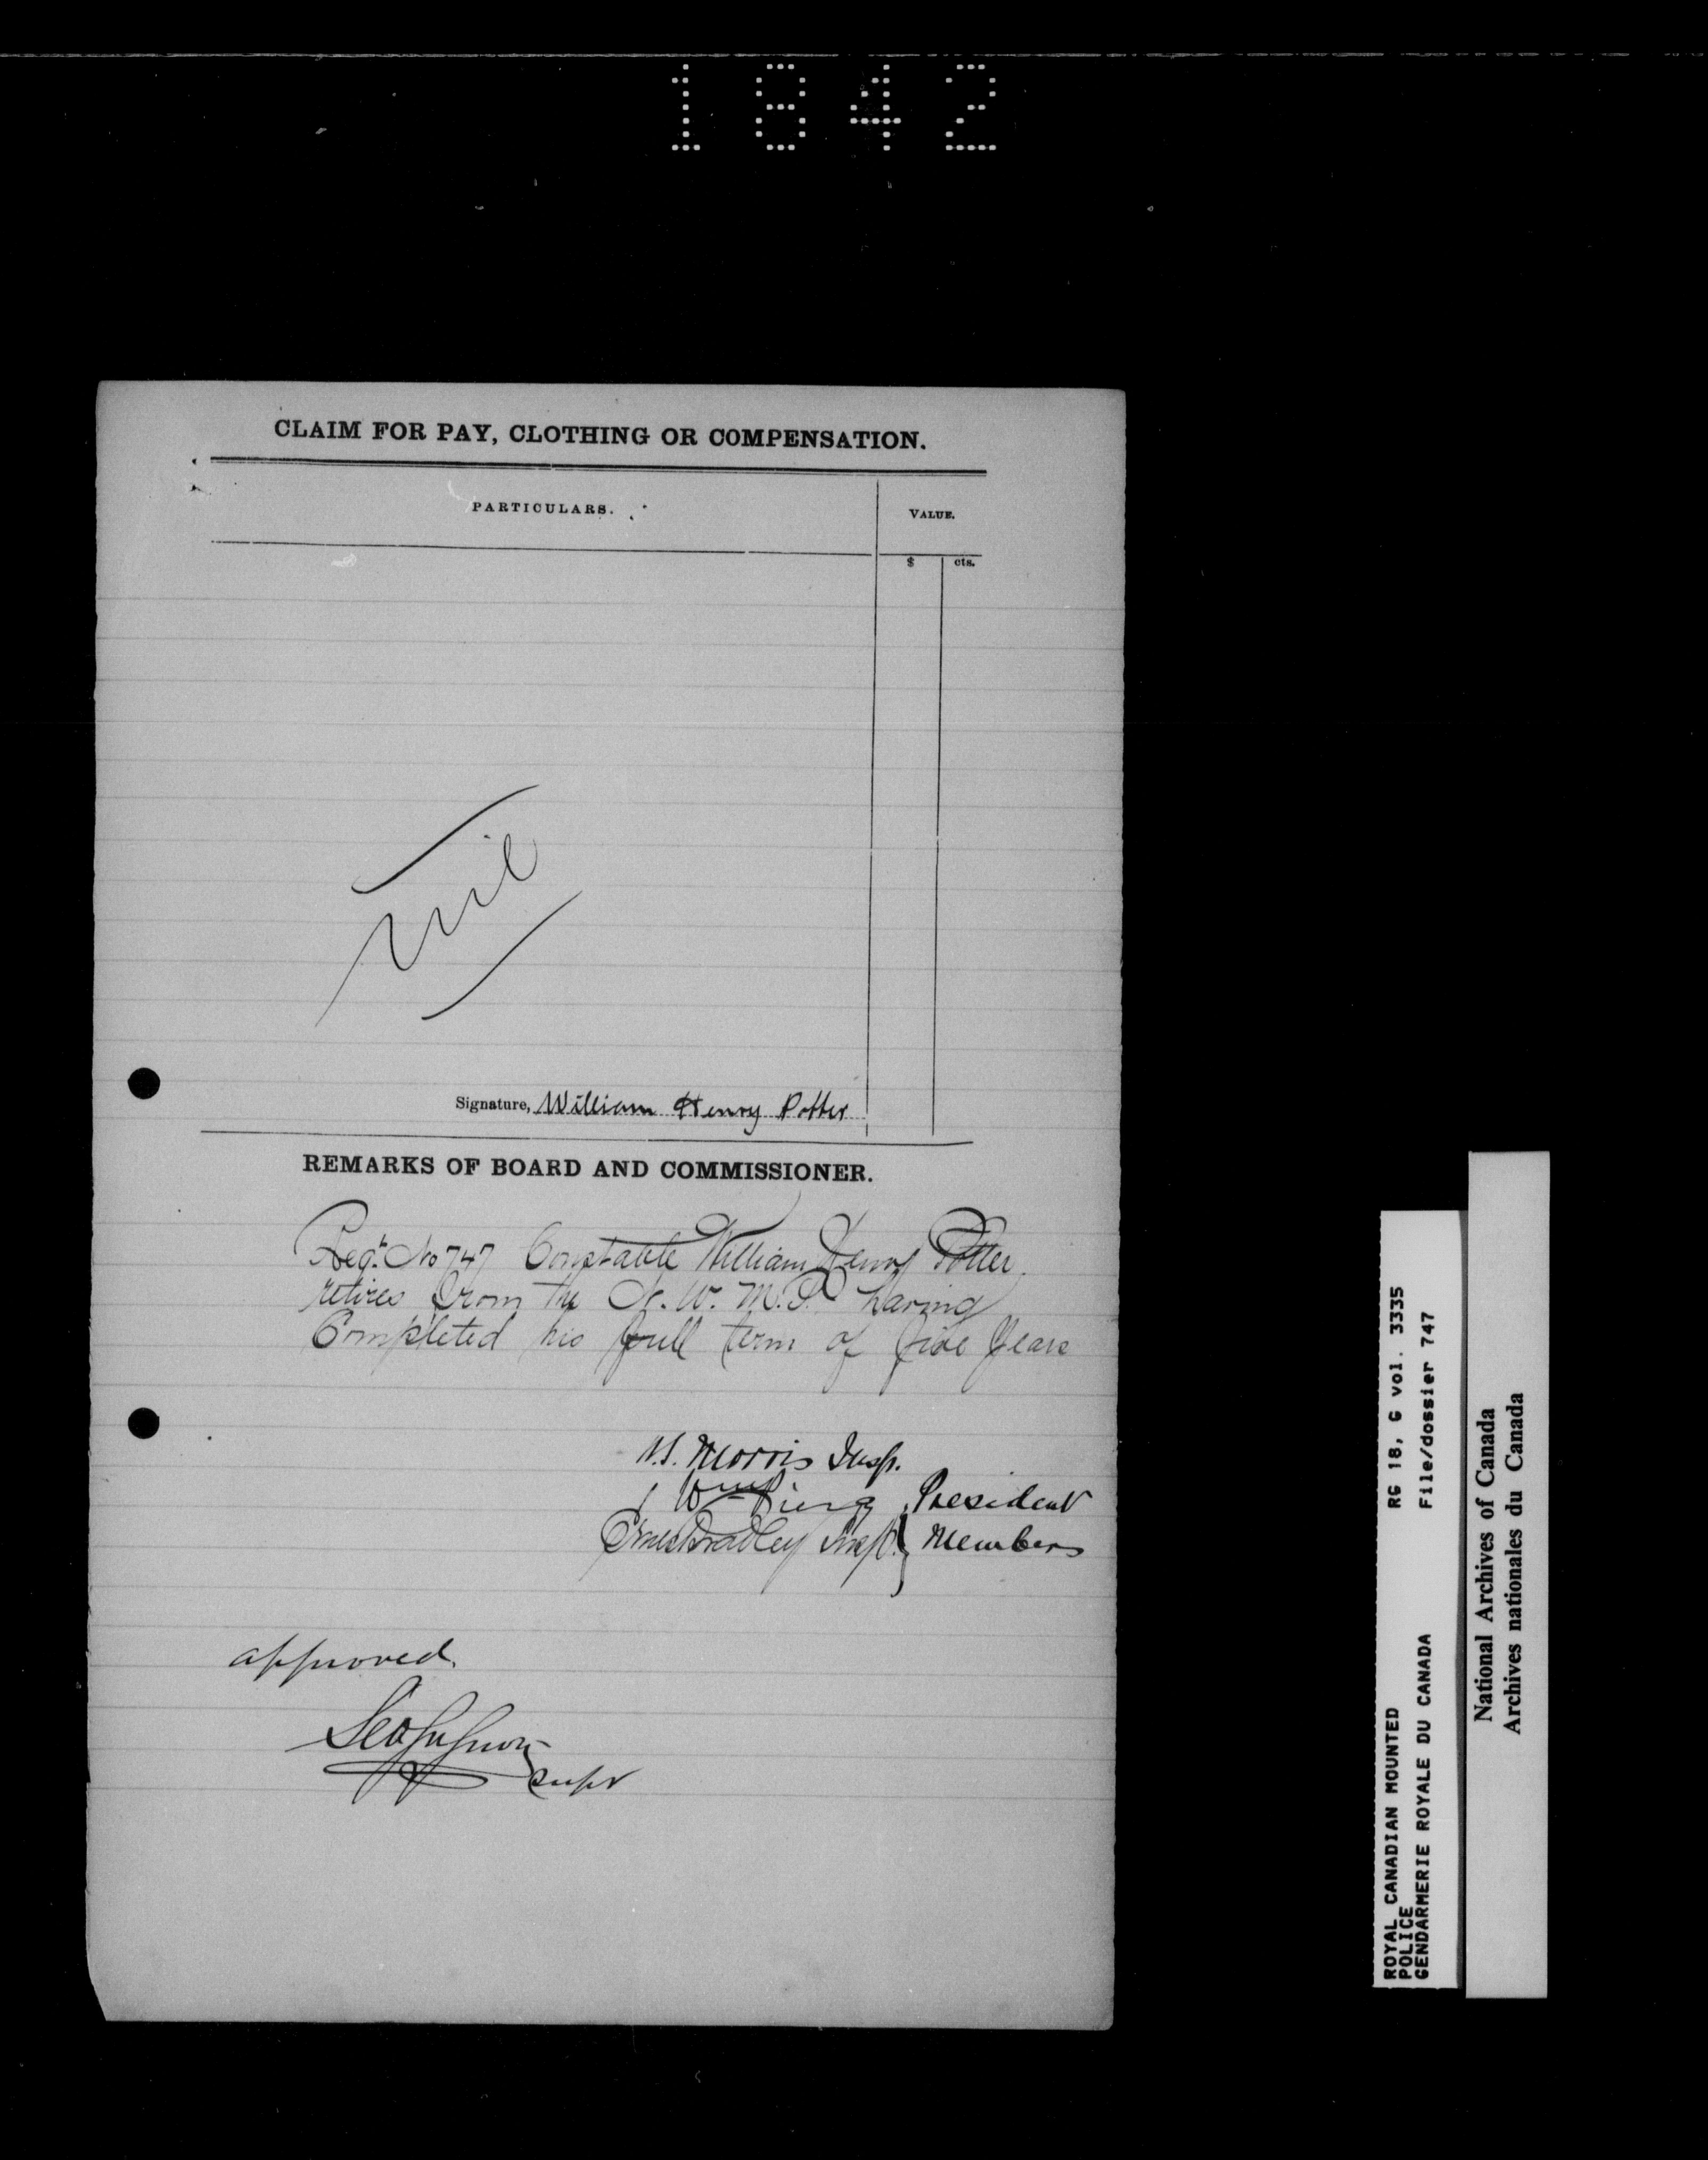 1842
CLAIM FOR PAY, CLOTHING OR COMPENSATION.
PARTICULARS.
VALUE.
$ cts.
Nil
Signature, William Henry Potter
REMARKS OF BOARD AND COMMISSIONER.
Regt. No 747 Constable William Henry Potter
retires from the N. W. M. P. having
Completed his full term of five Years
Morris Insp.
President
Bradley Insp. Members
approved.
Supt
ROYAL CANADIAN MOUNTED RG 18, G vol. 3335
POLICE
GENDARMERIE ROYALE DU CANADA File/dossier 747
National Archives of Canada
Archives nationales du Canada